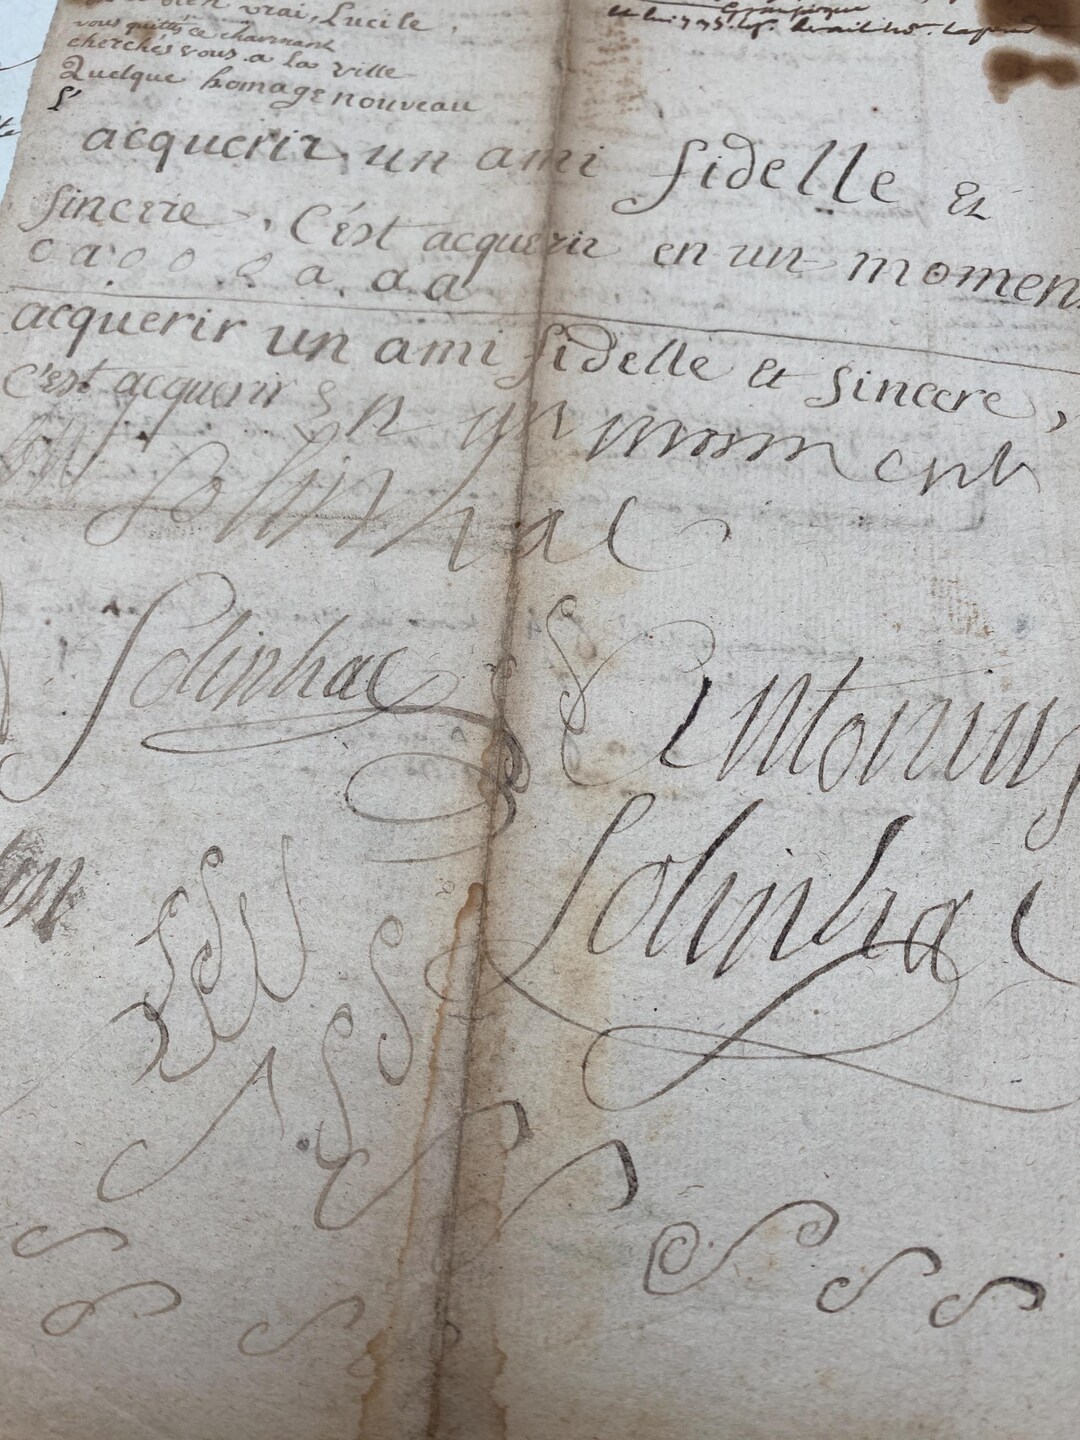 bien vrai, Lucile,
vous quittés ce charmant
cherchés vous a la ville
Quelque homage nouveau
l'
acquerir un ami fidelle et
sincere, C'est acquerir en un momen
o a o o o a a a
acquerir un ami fidelle et sincere,
C'est acquerir en un moment
Solinhac
Solinhac
Antonius
Solinhac
on